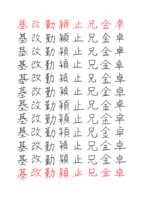 基改勤穎止兄金卓
基改勤穎止兄金卓
基改勤穎止兄金卓
基改勤穎止兄金卓
基改勤穎止兄金卓
基改勤穎止兄金卓
基改勤穎止兄金卓
基改勤穎止兄金卓
基改勤穎止兄金卓
基改勤穎止兄金卓
基改勤穎止兄金卓
基改勤穎止兄金卓